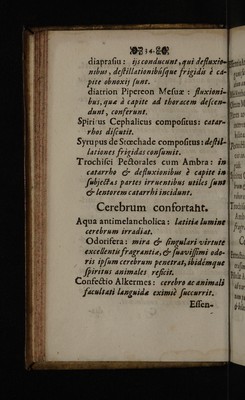 14.
diaprasiu: ijs conducunt, qui defluxio-
nibus, destillationibúsque frigidis è ca-
pite obnoxij sunt.
diatrion Pipereon Mesuæ: fluxioni-
bus, quæ à capite ad thoracem descen-
dunt, conferunt.
Spiritus Cephalicus compositus: catar-
rhos discutit.
Syrupus de Stœchade compositus: destil-
lationes frigidas consumit.
Trochisci Pectorales cum Ambra: in
catarrho & defluxionibus è capite in
subjectas partes irruentibus utiles sunt
& lentorem catarrhi incidunt.
Cerebrum confortant.
Aqua antimelancholica: lætitiæ lumine
cerebrum irradiat.
Odorifera: mira & singulari virtute
excellentis fragrantiæ, & suavissimi odo-
ris ipsum cerebrum penetrat, ibidémque
spiritus animales reficit.
Confectio Alkermes: cerebro ac animali
facultati languidæ eximiè succurrit.
Essen-